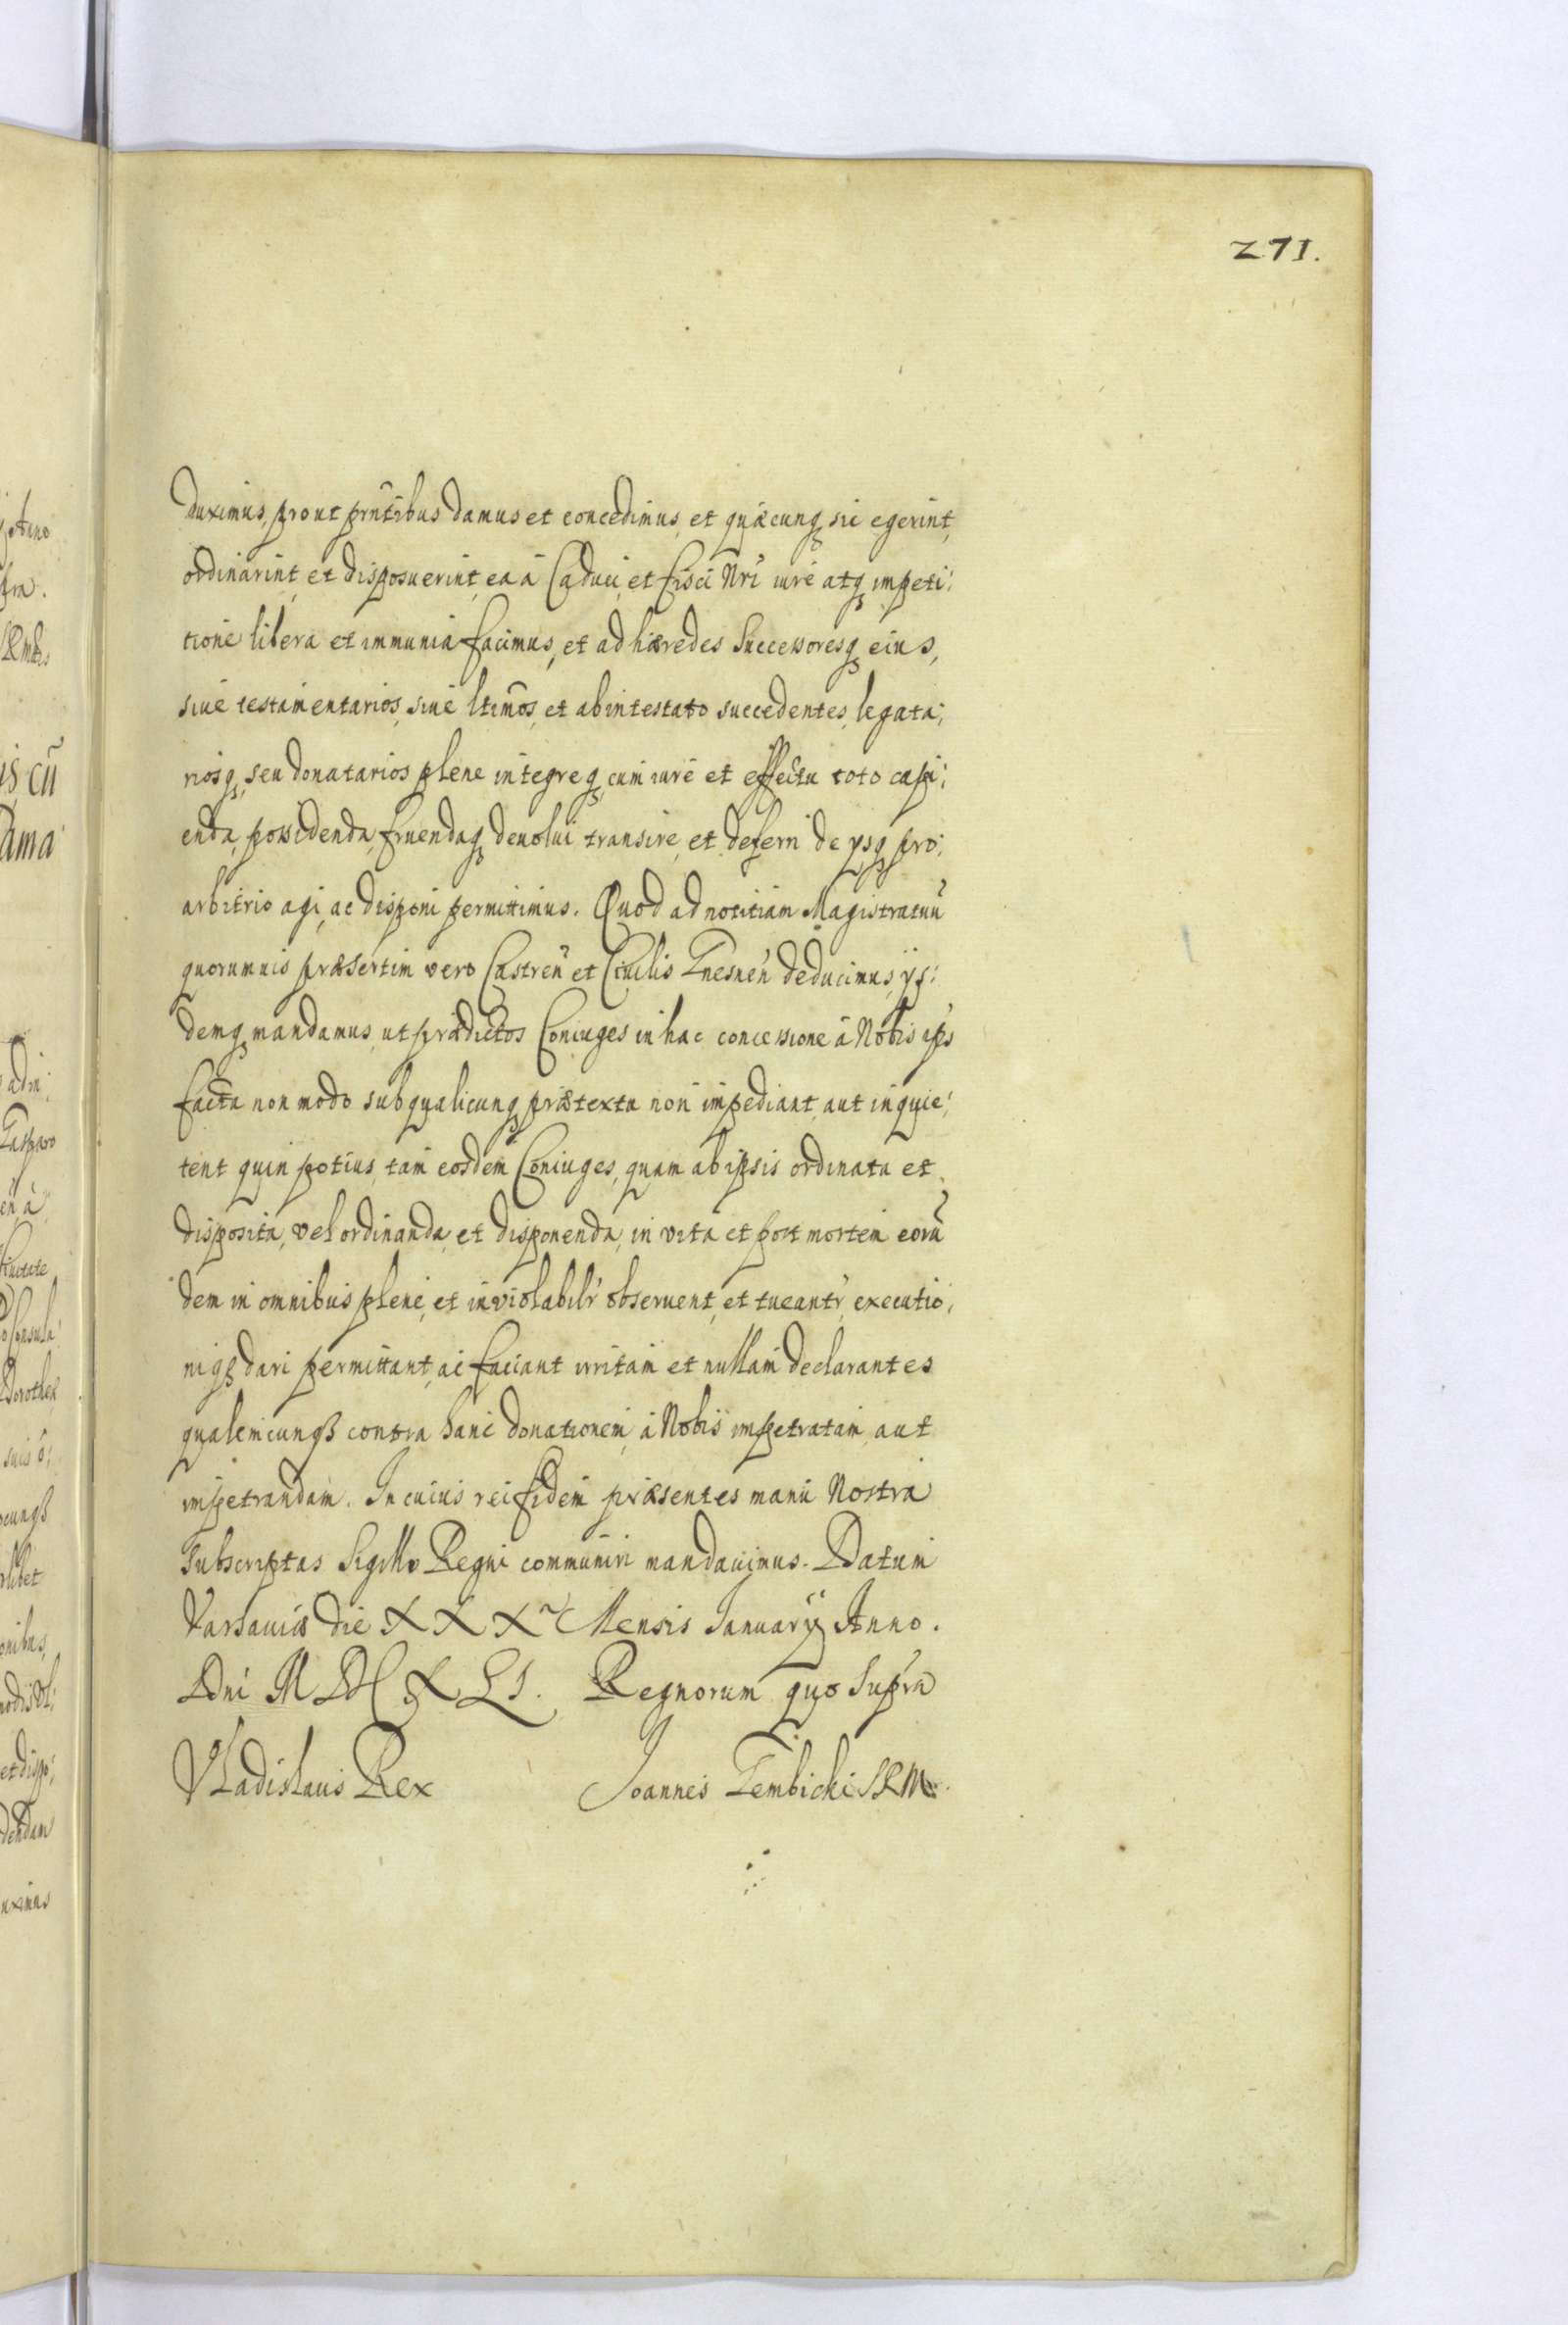 271.
duximus, prout pñtibus damus et concedimus, et quæcunq; sic egerint,
ordinarint, et disposuerint, ea á Caduci, et Fisci Nri iure atq; impeti:
tione libera et immunia facimus, et ad hæredes Successoresq; eius,
siue testamentarios, siue ltimos, et ab intestato succedentes, legata:
riosq; seu donatarios plene integreq; cum iure et effectu toto capi:
enda, possidenda, fruendaq; deuolui transire, et deferri de ijsq; pro:
arbitrio agi, ac disponi permittimus. Quod ad notitiam Magistratuũ
quorumuis præsertim vero Castreñ et Ciuilis Gnesneñ deducimus, ijs:
demq; mandamus, ut prædictos Coniuges in hac concessione á Nobis ip̃s
facta non modo sub qualicunq; prætextu non impediant, aut inquie:
tent quin potius, tam eosdem Coniuges, quam ab ipsis ordinata et
disposita, vel ordinanda, et disponenda, in vita et post mortem eorũ
dem in omnibus plene, et inviolabilr obseruent, et tueantr, executio:
niq; dari permittant, ac faciant irritam et nullam declarantes
qualemcunq; contra hanc donationem, á Nobis impetratam, aut
impetrandam. In cuius rei fidem præsentes manu Nostra
Subscriptas Sigillo Regni communiri mandauimus. Datum
Varsauiæ die XXX Mensis Januarij Anno.
Dni MDCXLI. Regnorum quo Supra
Vladislaus Rex Joannes Gembicki SRM.